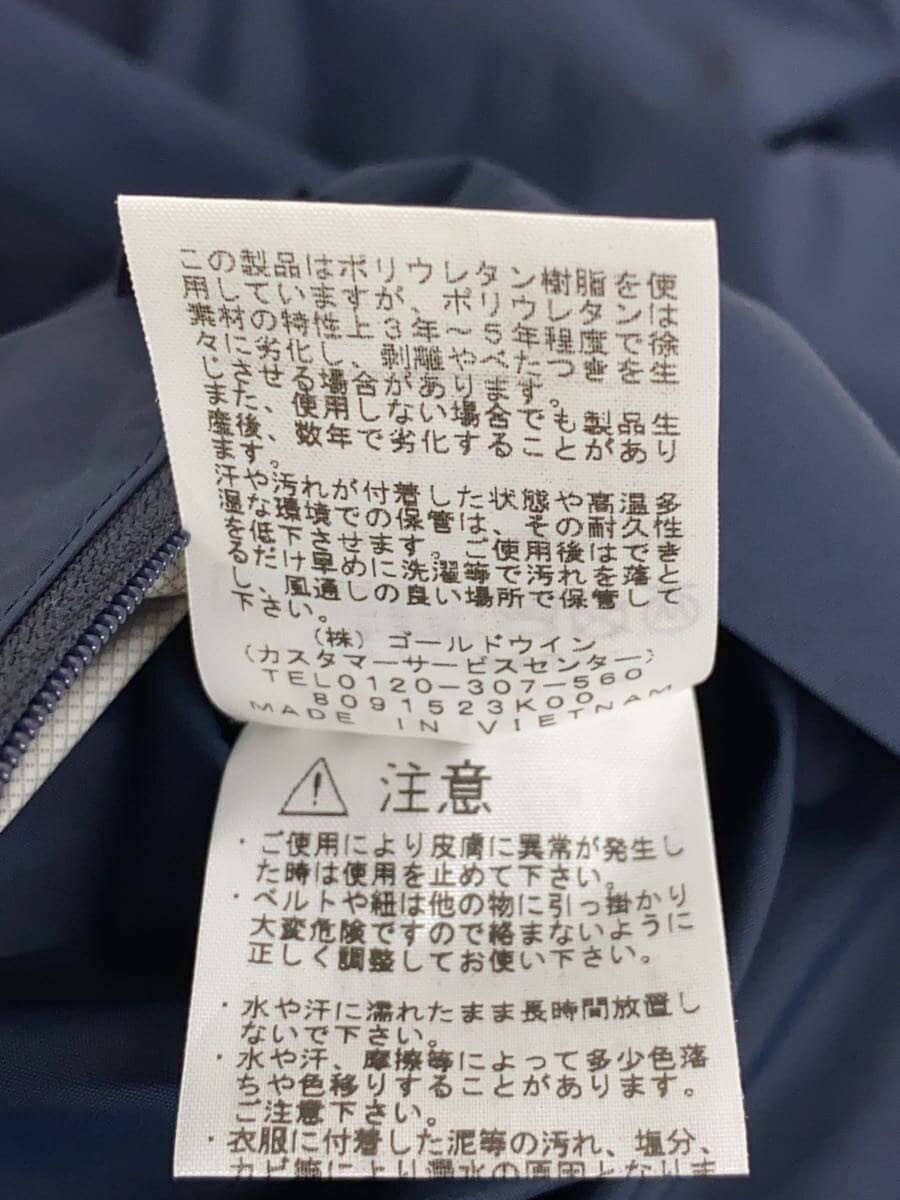 この製品はポリウレタン樹脂を使
用していますが、ポリウレタンは
素材の特性上3年~5年程度で徐
々に劣化し、剥離やべたつきを生
じさせる場合があります。
また、使用しない場合でも製品生
産後、数年で劣化することがあり
ます。
汗や汚れが付着した状態や高温多
湿な環境での保管は、その耐久性
を低下させます。ご使用後はでき
るだけ早めに洗濯等で汚れを落と
し、風通しの良い場所で保管して
下さい。
(株)ゴールドウイン
(カスタマーサービスセンター)
TEL0120-307-560
8091523K00
MADE IN VIETNAM
注意
・ご使用により皮膚に異常が発生し
た時は使用を止めて下さい。
・ベルトや紐は他の物に引っ掛かり
大変危険ですので絡まないように
正しく調整してお使い下さい。
・水や汗に濡れたまま長時間放置し
ないで下さい。
・水や汗、摩擦等によって多少色落
ちや色移りすることがあります。
ご注意下さい。
・衣服に付着した泥等の汚れ、塩分、
カビ等により漏水の原因となりま